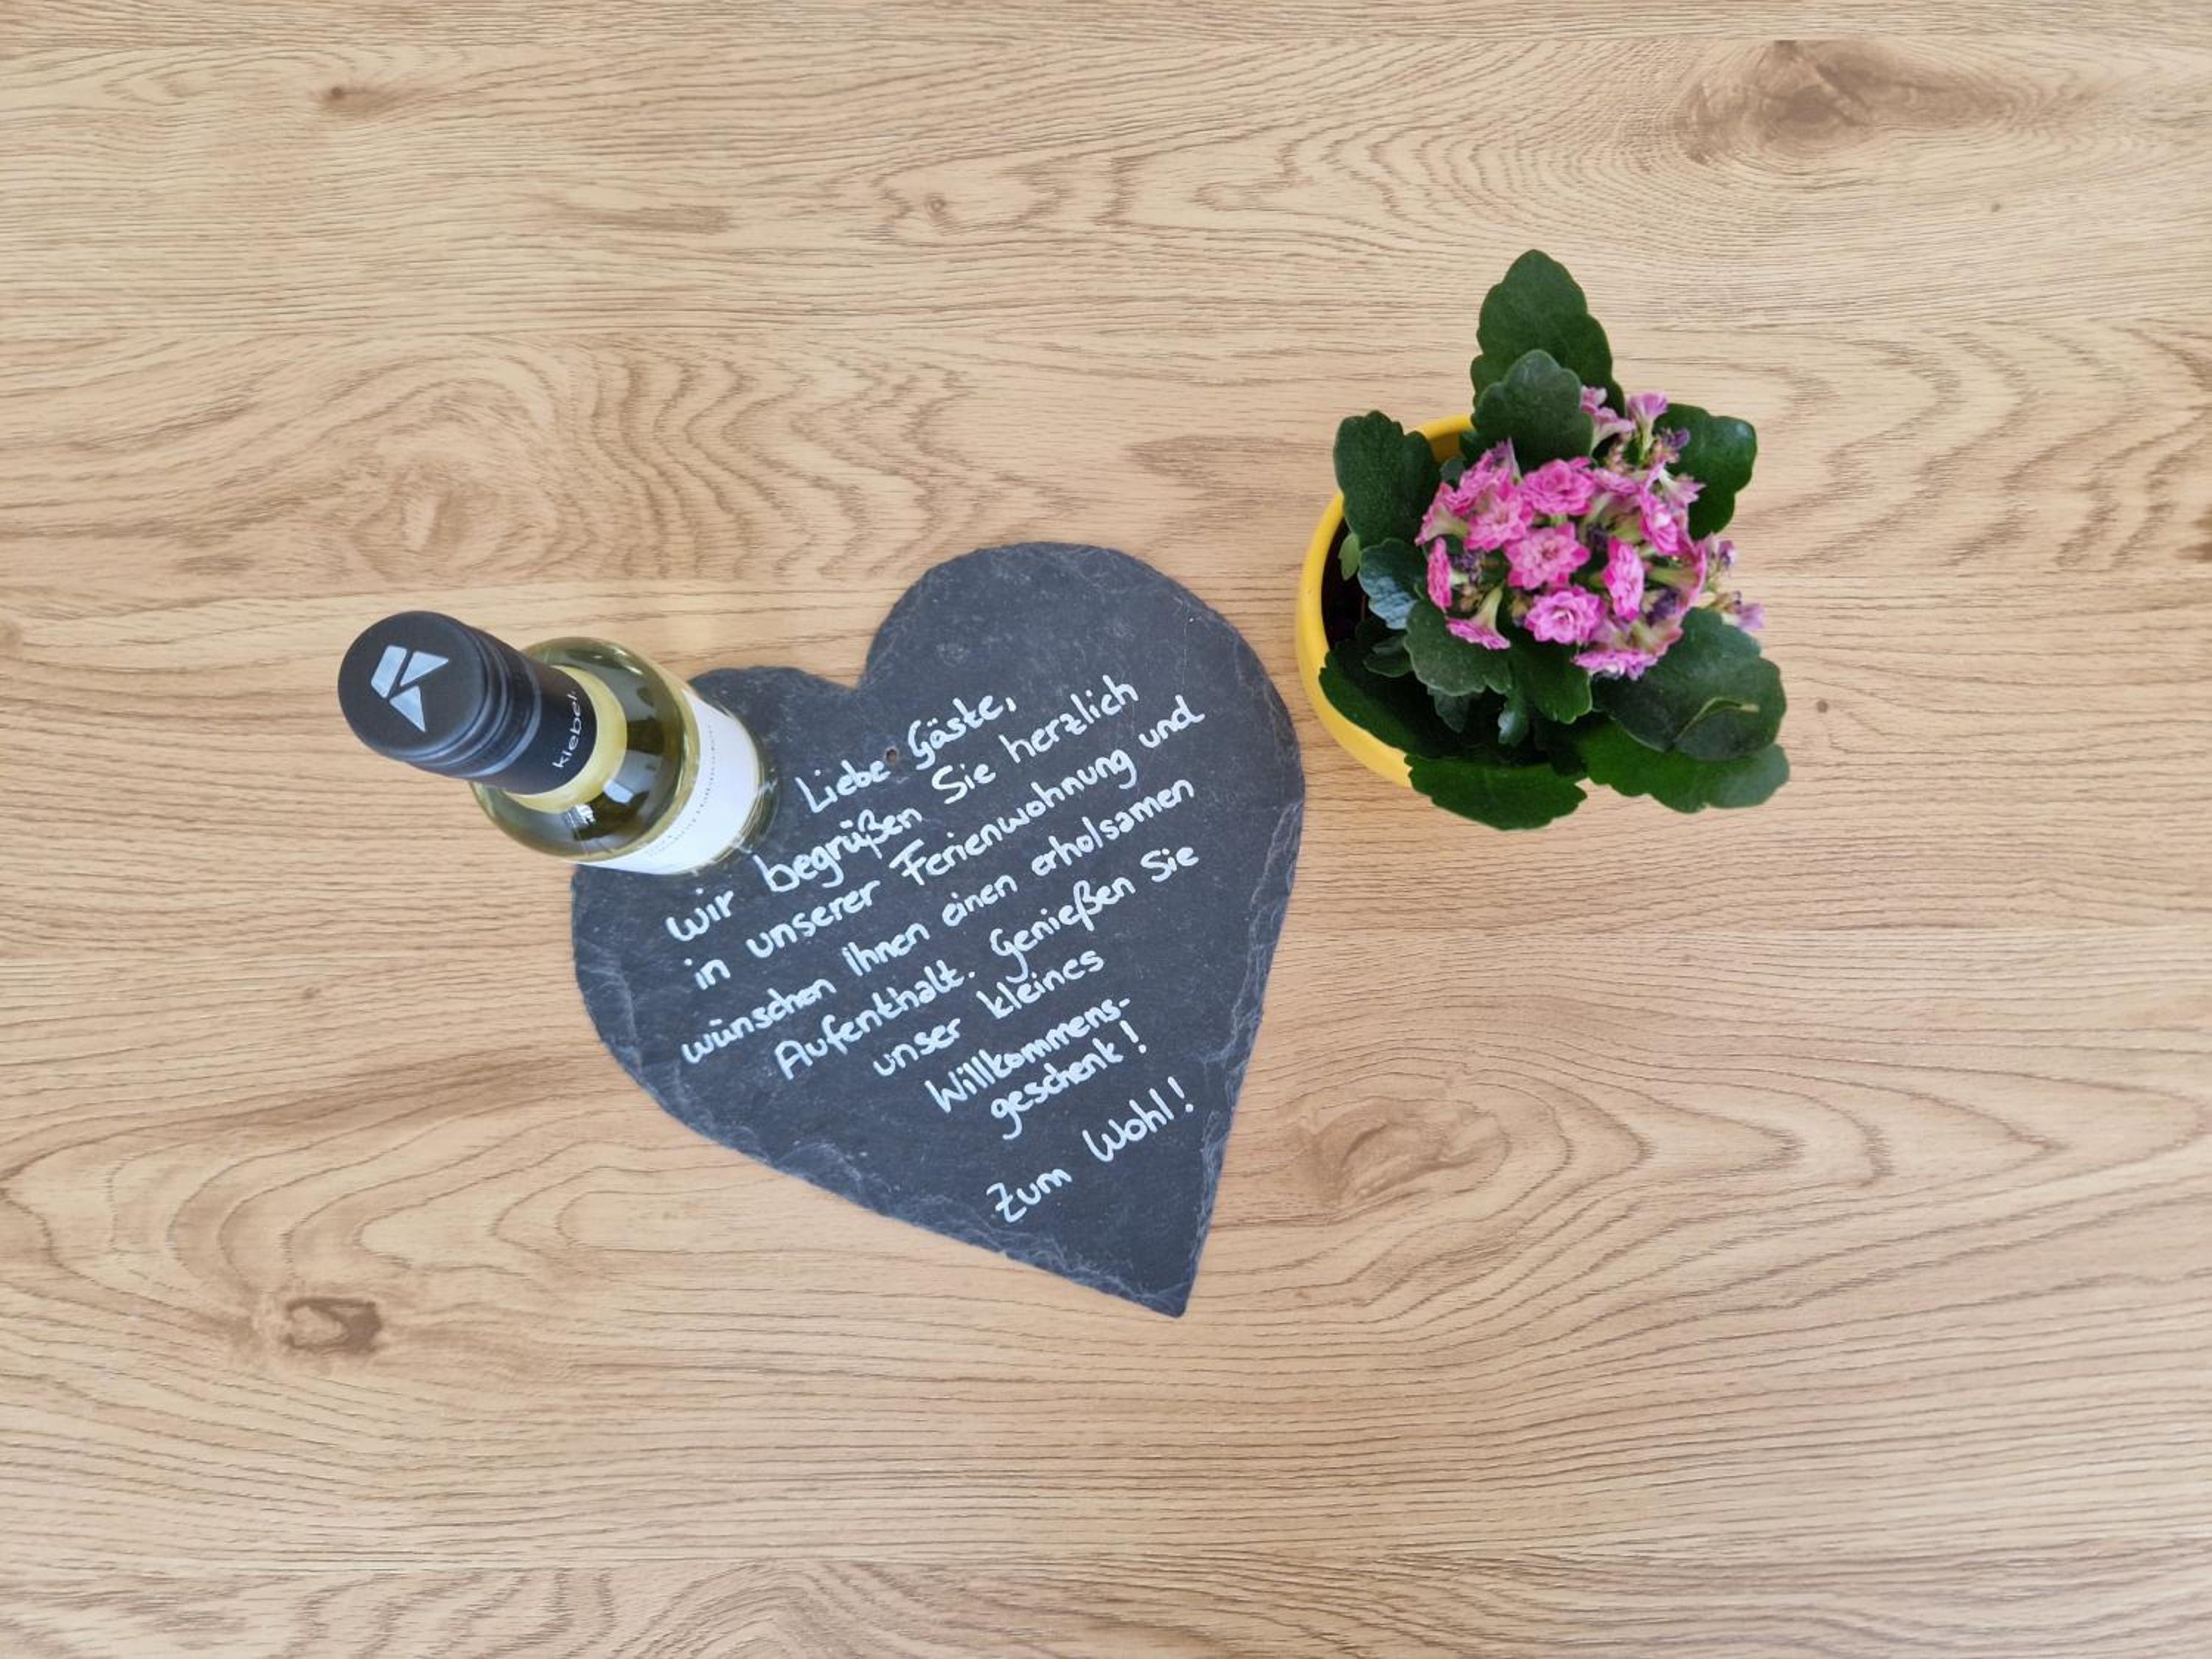 kiebel
Liebe Gäste,
wir begrüßen Sie herzlich
in unserer Ferienwohnung und
wünschen Ihnen einen erholsamen
Aufenthalt. Genießen Sie
unser kleines
Willkommens-
geschenk!
Zum Wohl!